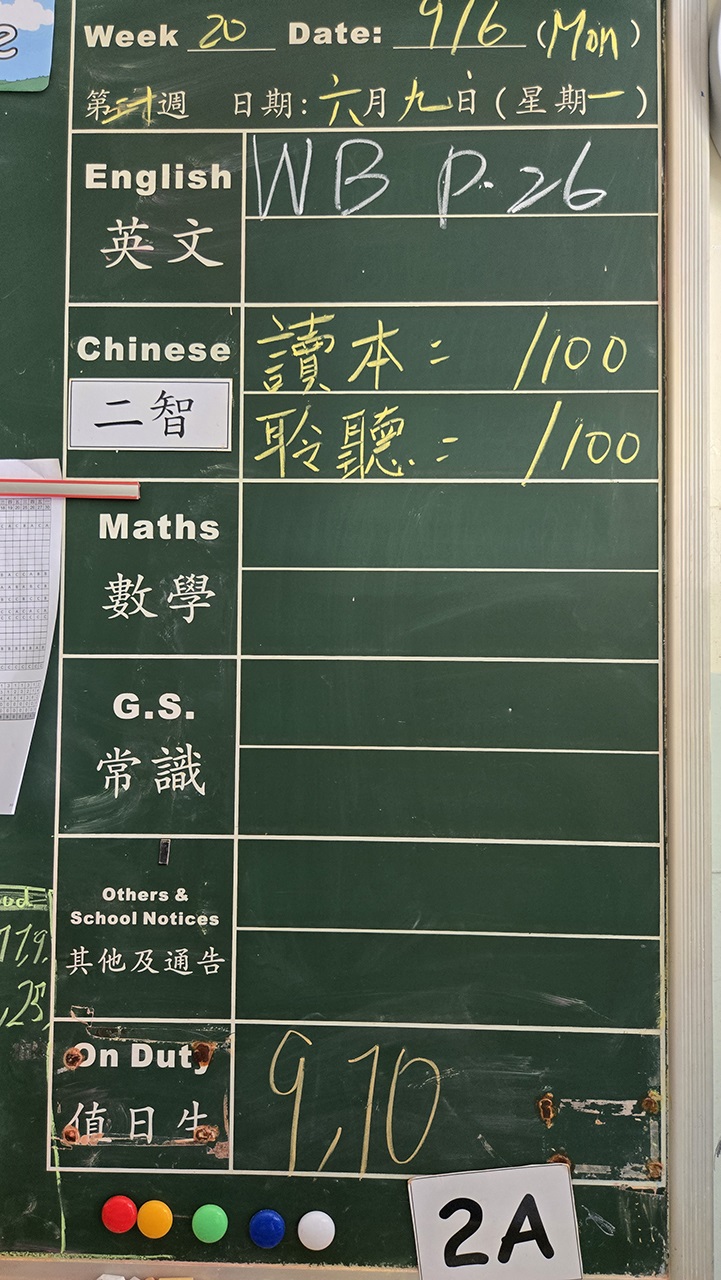 e
Week 20 Date: 9/6 (Mon)
第二十週 日期: 六月九日 (星期一)
English WB P.26
英文
Chinese 讀本: /100
二智 聆聽: /100
Maths
數學
G.S.
常識
Others &
School Notices
其他及通告
On Duty 9,10
值日生
2A